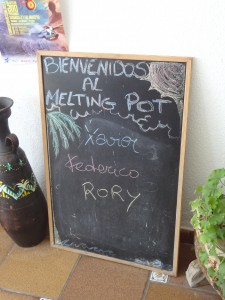 BIENVENIDOS
AL
MELTING POT
Xavier
Federico
RORY